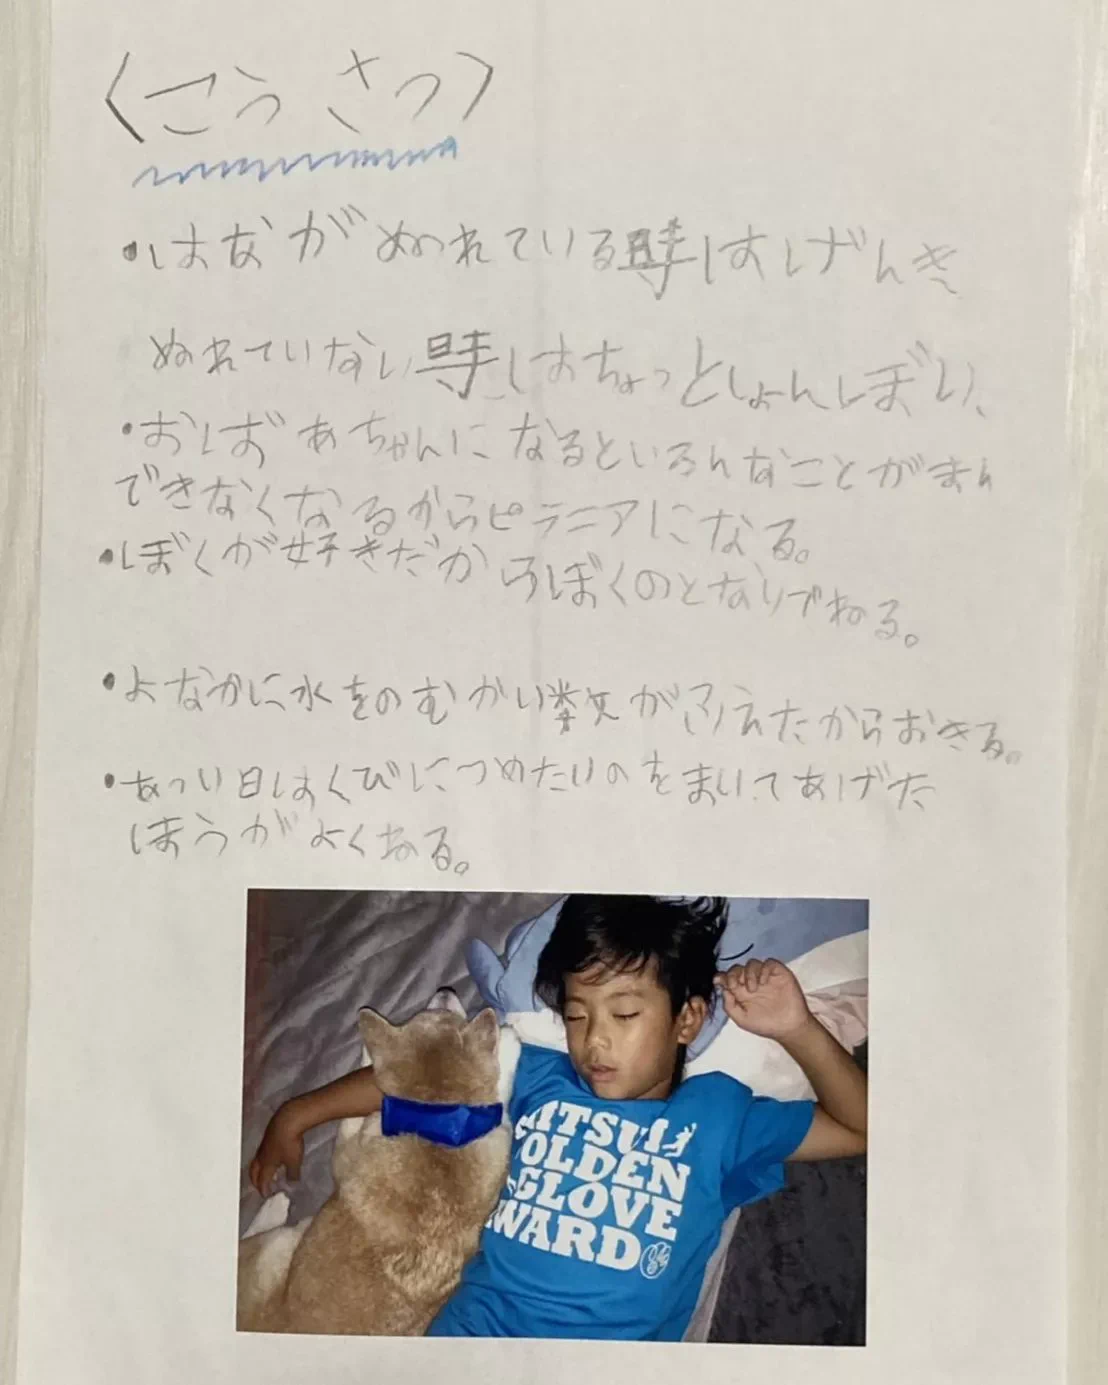 〈こうさつ〉
・はながぬれている時はげんき
ぬれていない時はちょっとしょんぼり、
・おばあちゃんになるといろんなことがまん
できなくなるからピラニアになる。
・ぼくが好きだからぼくのとなりでねる。
・よなかに水をのむかい数がふえたからおきる。
・あつい日はくびにつめたいのをまいてあげた
ほうがよくなる。
MITSUI
GOLDEN
GLOVE
AWARD